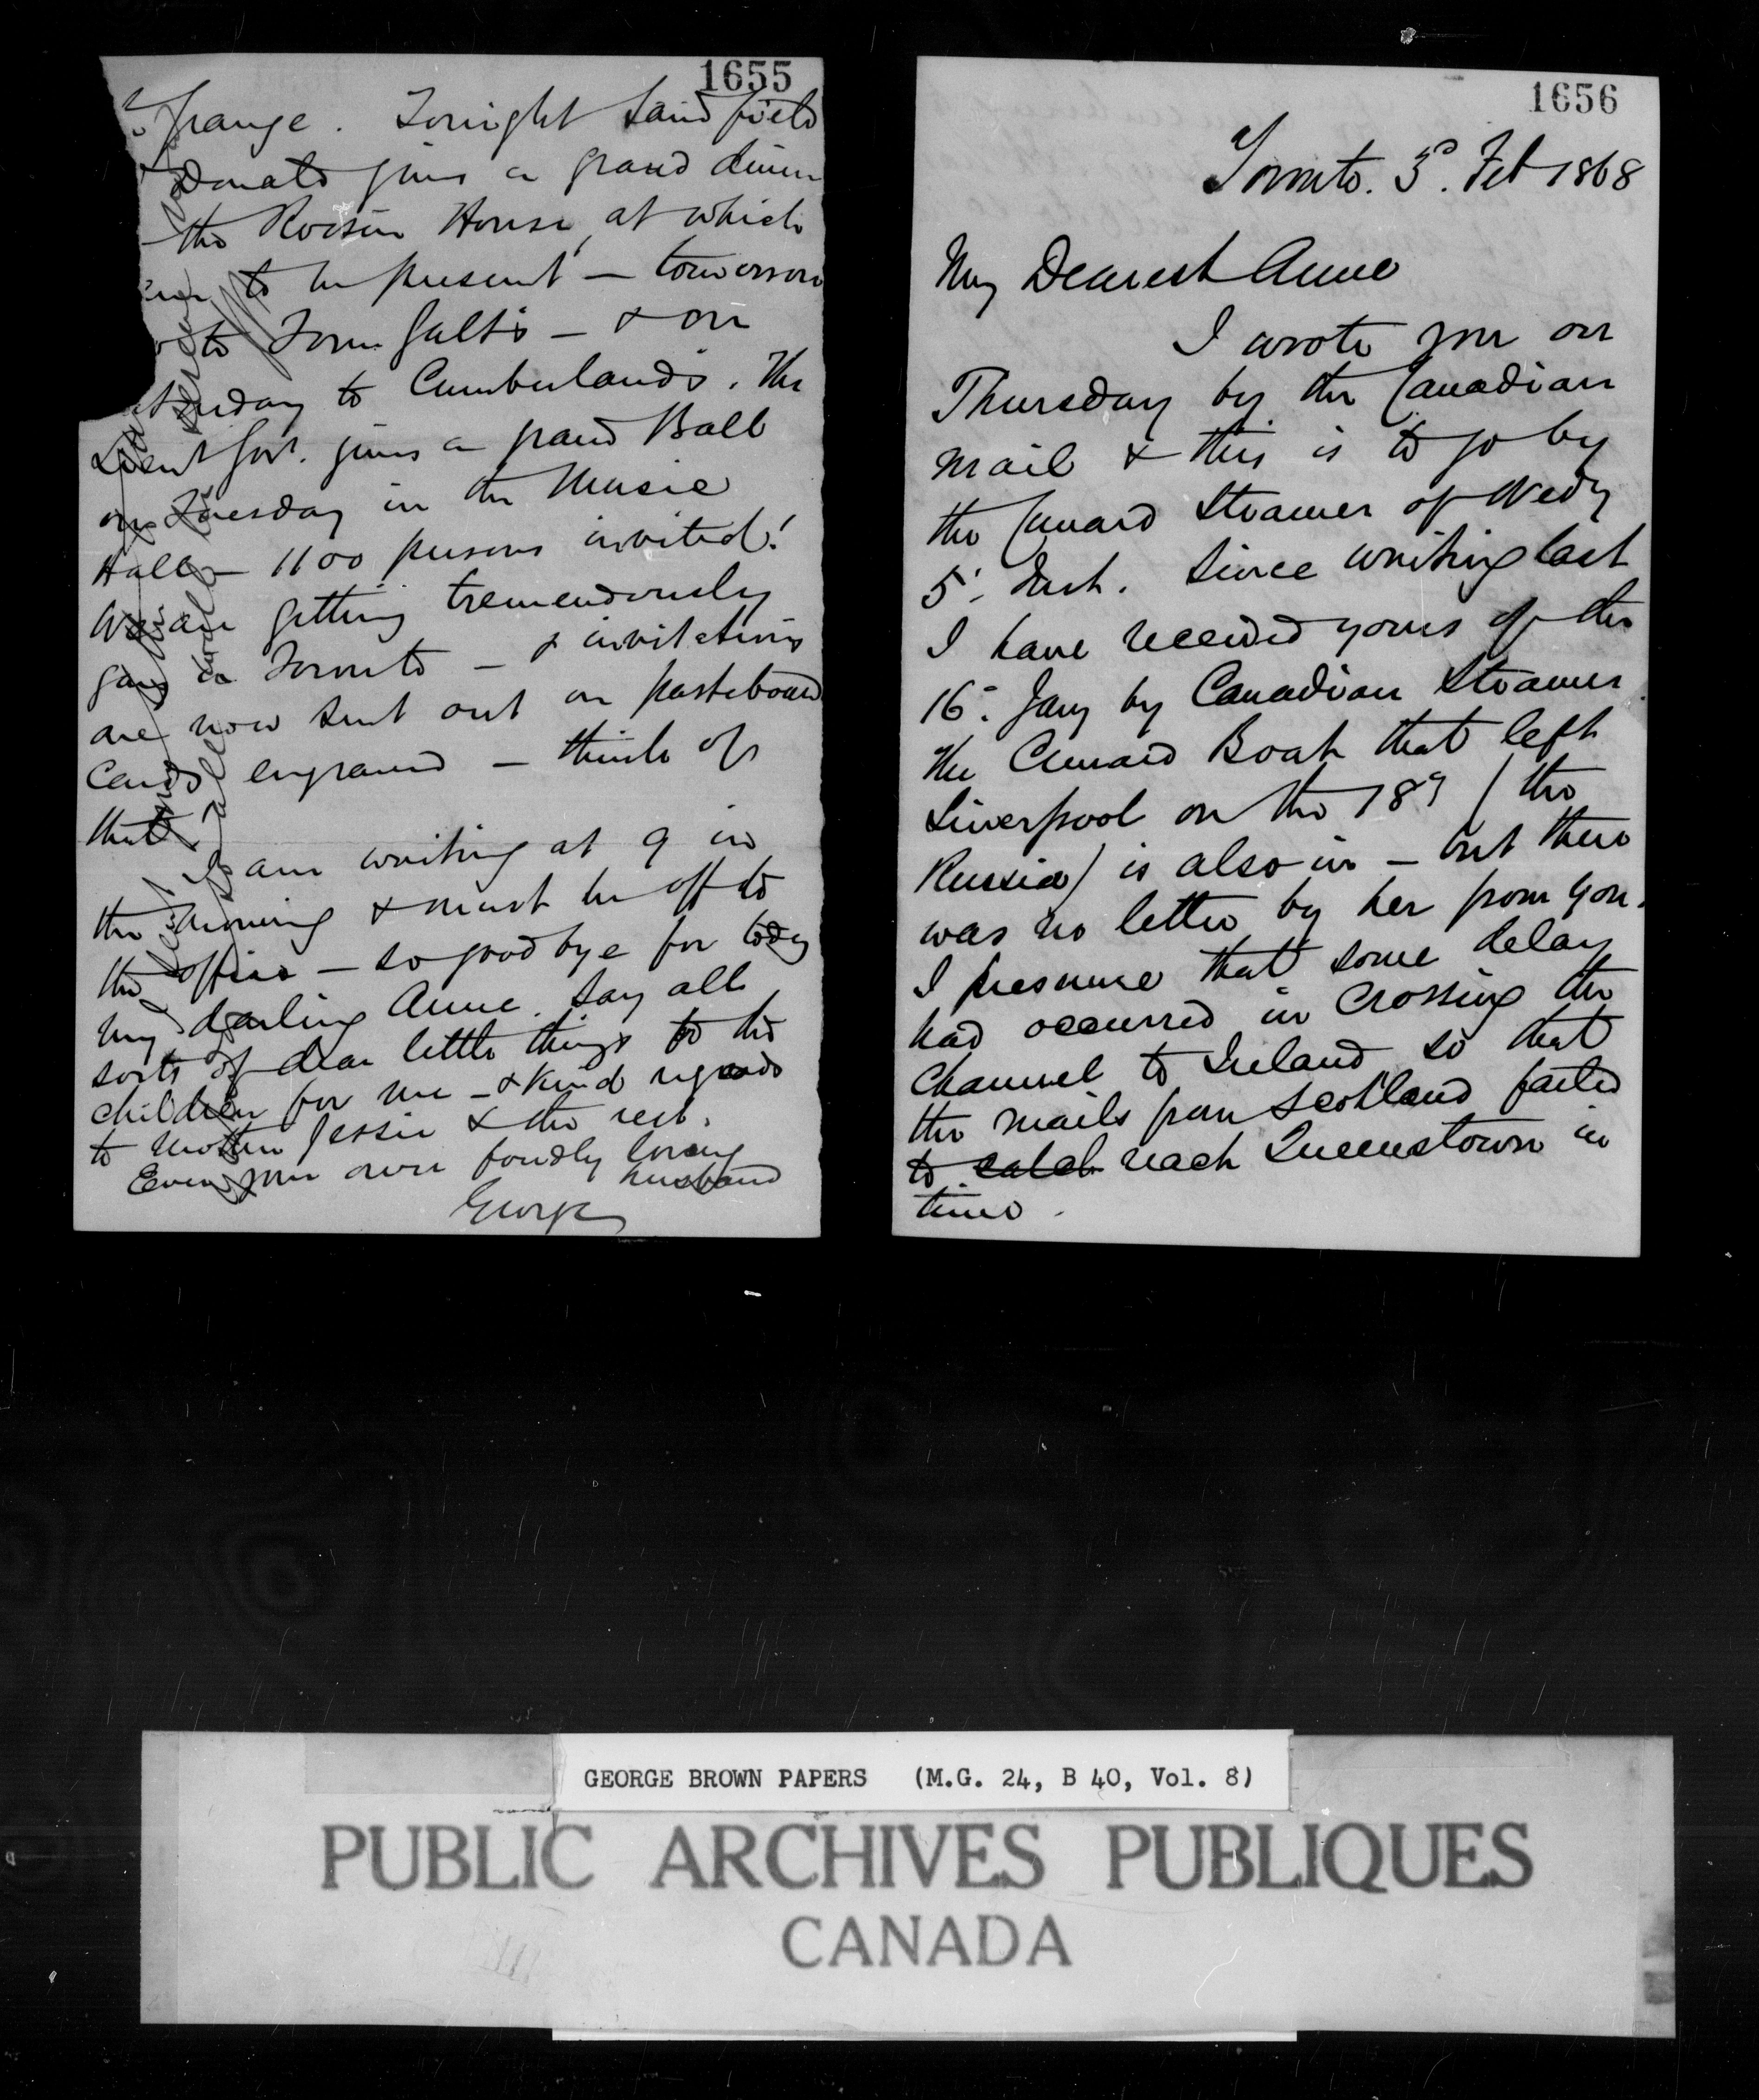 1655
Grange. Tonight Sandfield
Donald gives a grand dinner
the Rossin House, at which
to be present — tomorrow
to Tom Galt's — & on
to Cumberlands. The
Lieut Govr. gives a grand Ball
on Tuesday in the Music
Hall — 1100 persons invited!
We are getting tremendously
gay in Toronto — & invitations
are now sent out on pasteboard
cards engraved — think of
that
I am writing at 9 in
the morning & must be off to
the office — so good bye for today
my darling Anne. Say all
sorts of dear little things to the
children for me — & kind regards
to Mother Jessie & the rest.
Ever your own fondly loving
husband
George
1656
Toronto. 3d. Feb 1868
My Dearest Anne
I wrote you on
Thursday by the Canadian
mail & this is to go by
the Cunard Steamer of Wedy
5. Inst. Since writing last
I have received yours of the
16. Jany by Canadian Steamer.
The Cunard Boat that left
Liverpool on the 18th (the
Russia) is also in — but there
was no letter by her from you.
I presume that some delay
had occurred in crossing the
Channel to Ireland so that
the mails from Scotland failed
to catch reach Queenstown in
time.
GEORGE BROWN PAPERS (M.G. 24, B 40, Vol. 8)
PUBLIC ARCHIVES PUBLIQUES
CANADA